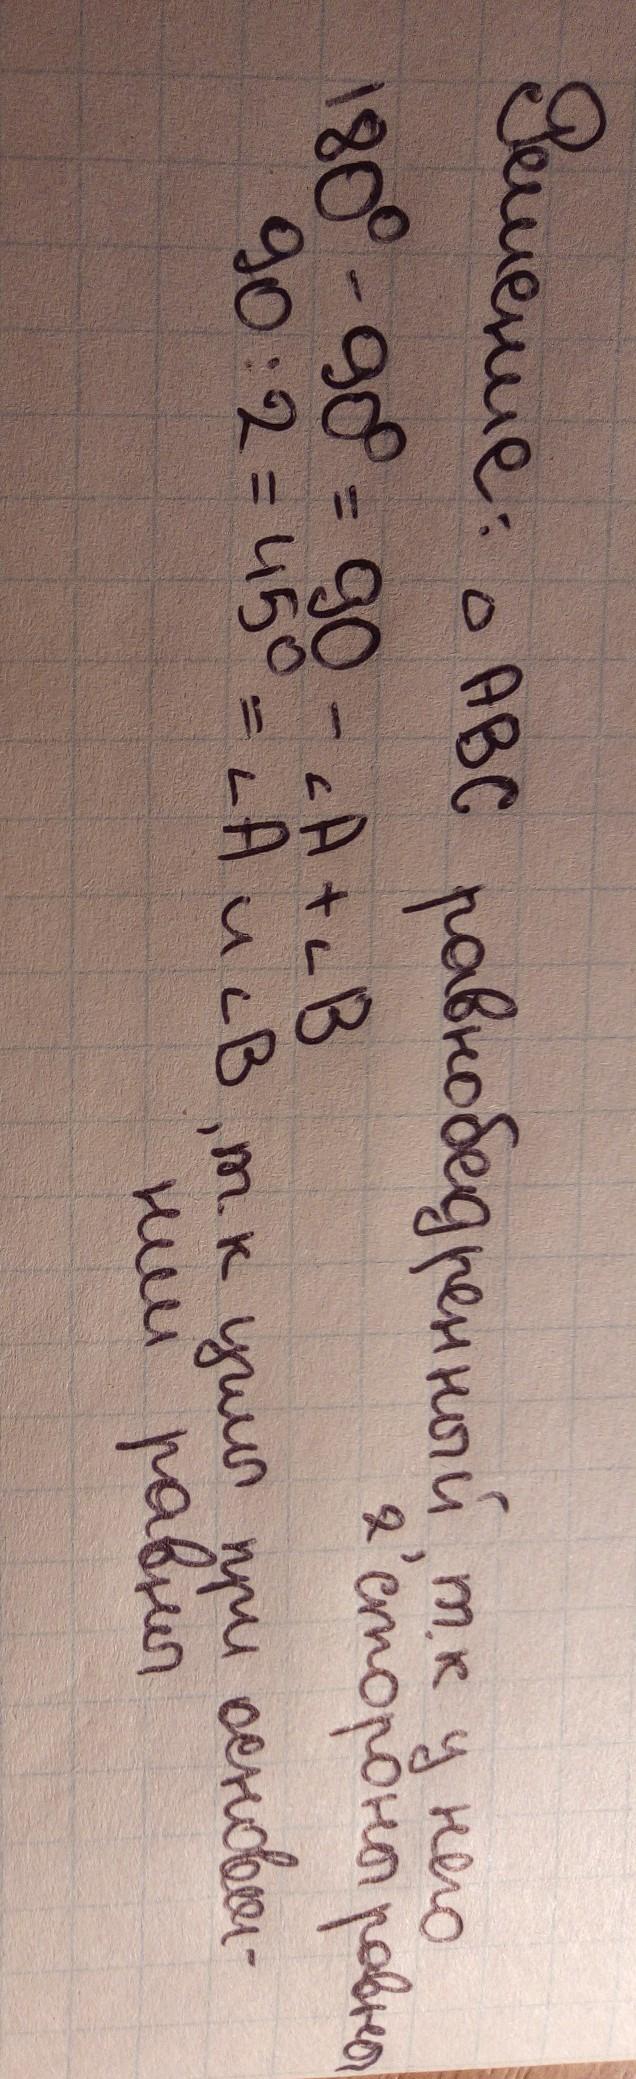 Решение: △ ABC равнобедренный т.к у него
2 стороны равны
180° - 90° = 90 - ∟A + ∟B
90 : 2 = 45° = ∟A и ∟B, т.к углы при основан-
нии равны